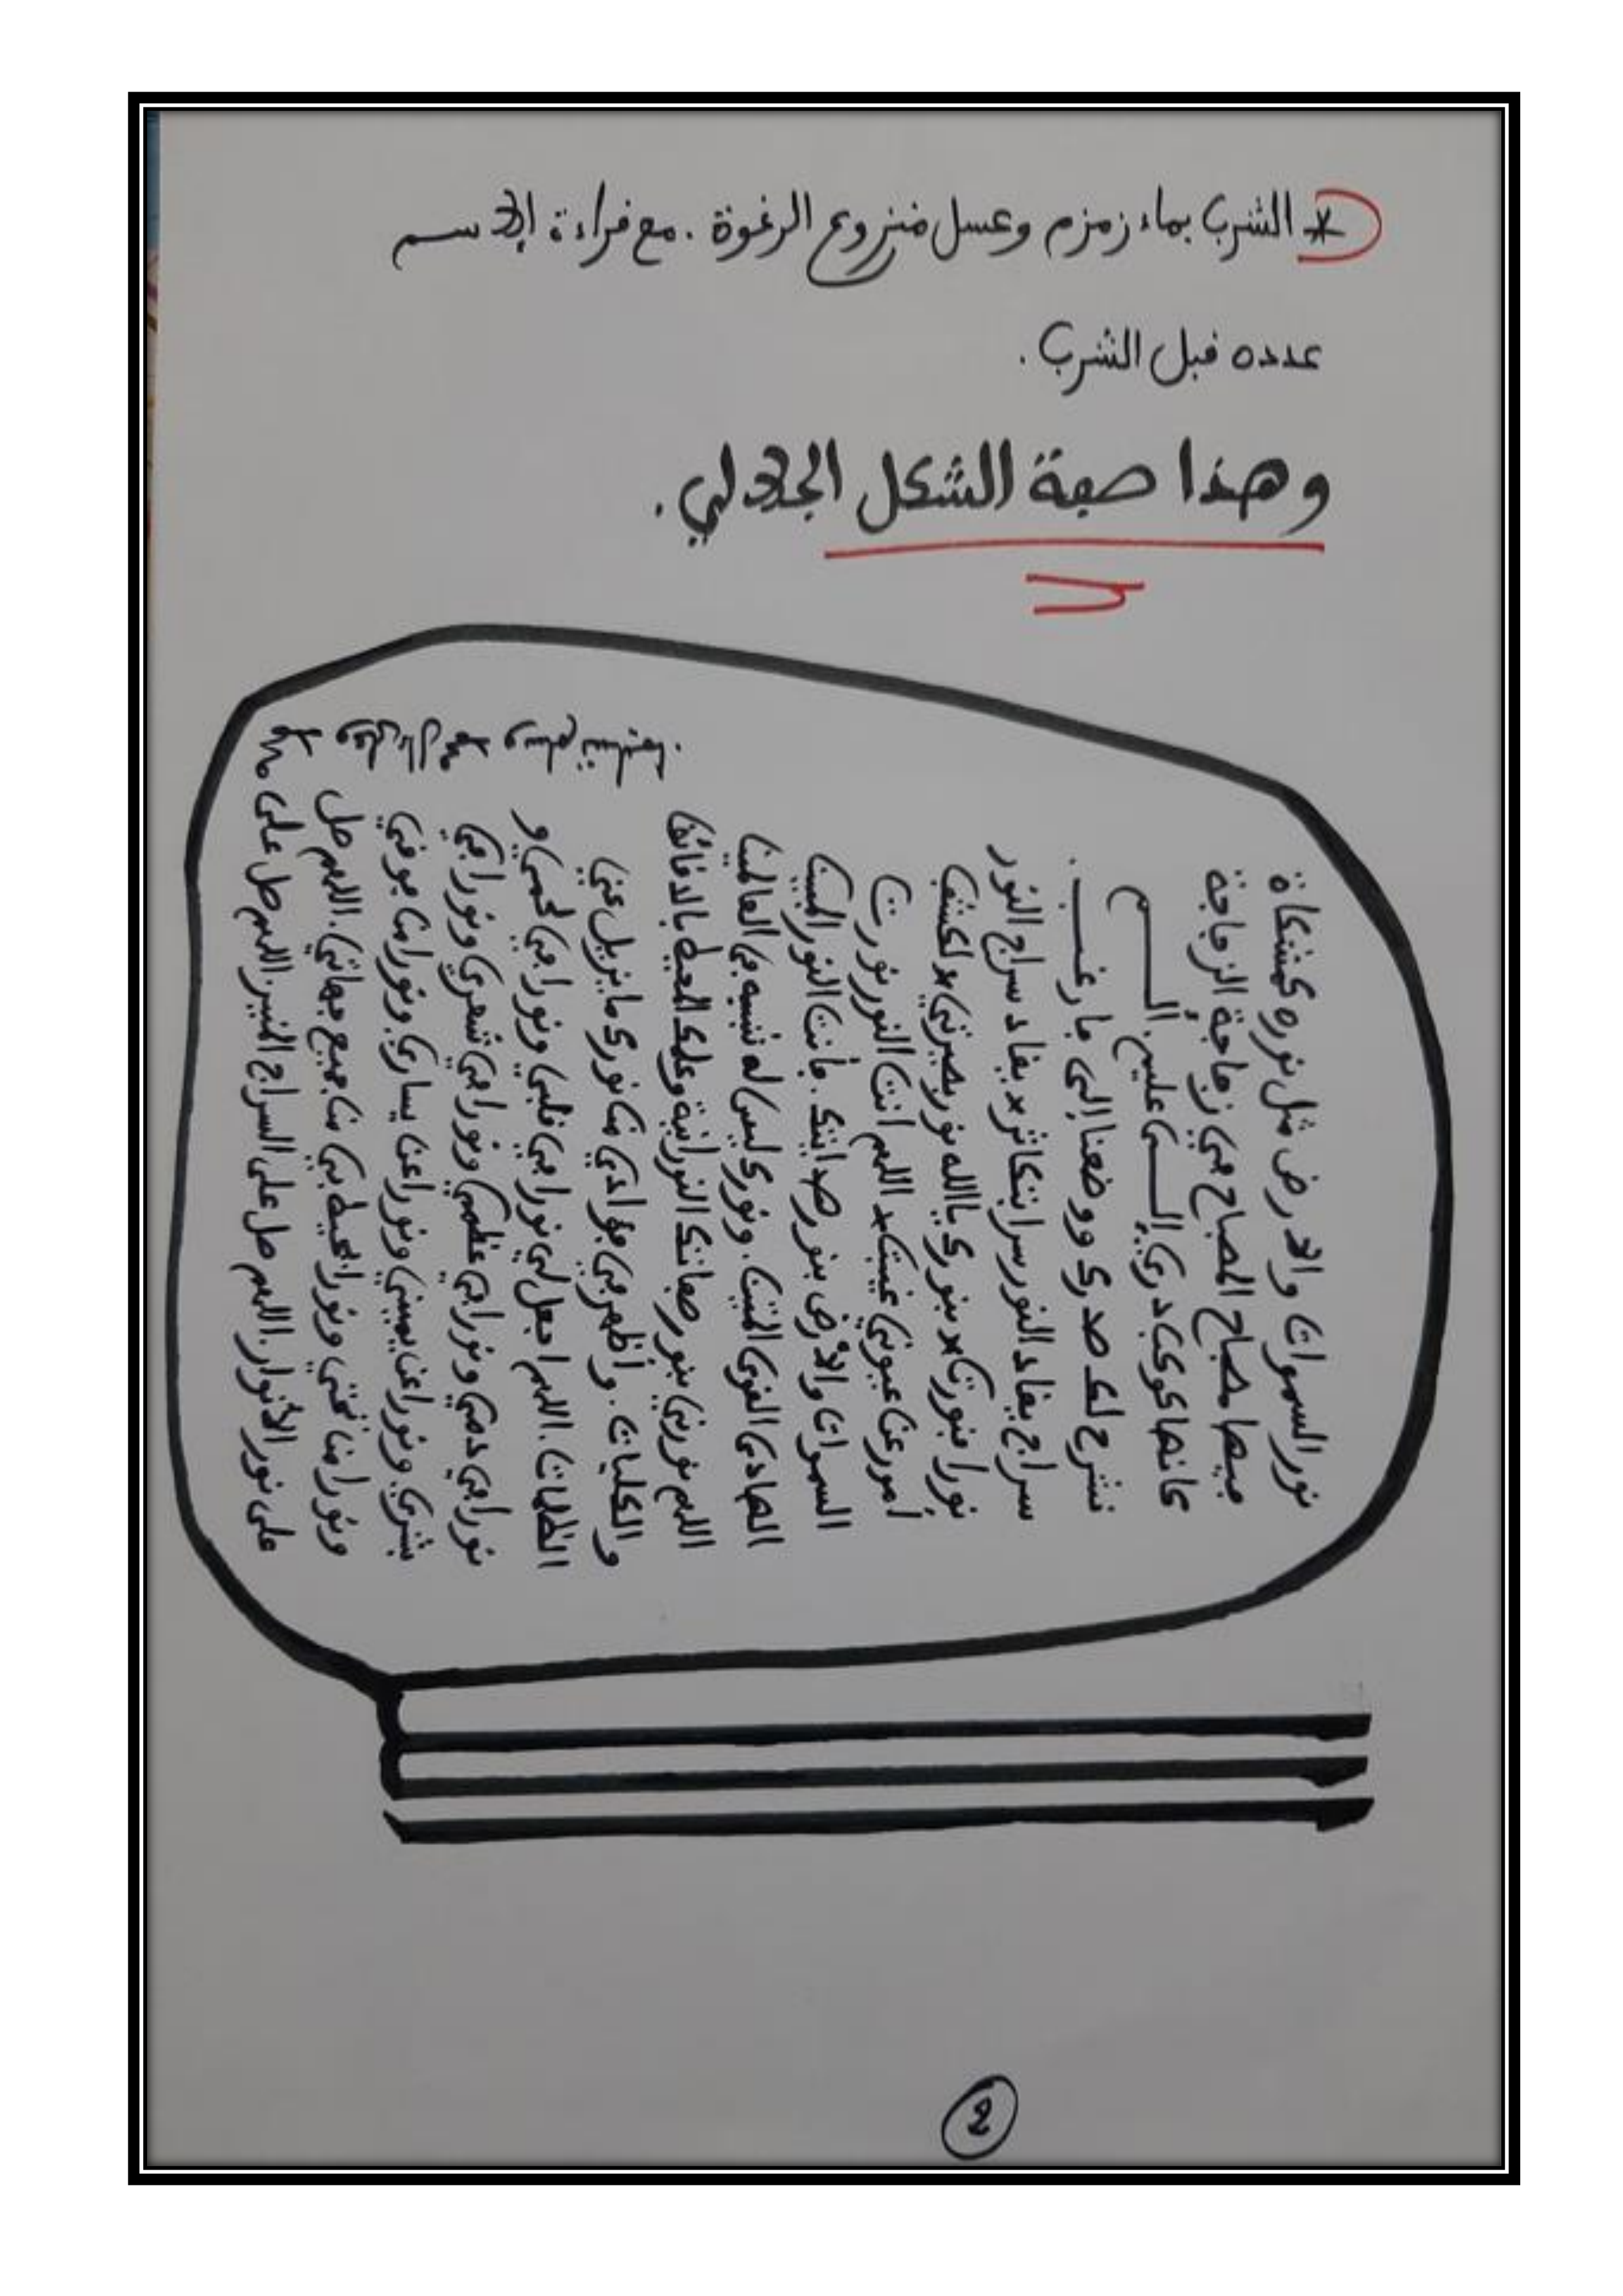 * الشرب بماء زمزم وعسل منزوع الرغوة . مع قراءة الاسم
عدده قبل الشرب .
وهذا صفة الشكل الجلالي .
نور السموات والارض مثل نوره كمشكاة
فيها مصباح المصباح في زجاجة الزجاجة
كانها كوكب دري إلــى عليم . الــــم
نشرح لك صدرك ووضعنا إلى فارغــب .
سراج يقاد النور سرا بتكاثر يقاد سراج النور
نورا بنورت بنورك يا الله نور بصيرتي لكشف
أمور عن عيوني غيبت اللهم انت النور نورت
السموات والأرض بنور صدانيتك . فأنت النور المبين
الهادي القوي المتين . ونورك ليس له شبيه في العالمين
اللهم نورني بنور صفاتك النورانية وعلمك المحيط بالدقائق
والكليات . وأظهر في فؤادي من نورك ما يزيل عني
الظلمات . اللهم اجعل لي نورا في قلبي ونورا في لحمي و
نورا في دمي ونورا في عظمي ونورا في شعري ونورا في
بشري ونورا عن يميني ونورا عن يساري ونورا من فوقي
ونورا من تحتي ونورا يحيط بي من جميع جهاتي . اللهم صل
على نور الأنوار . اللهم صل على السراج المنير . اللهم صل على